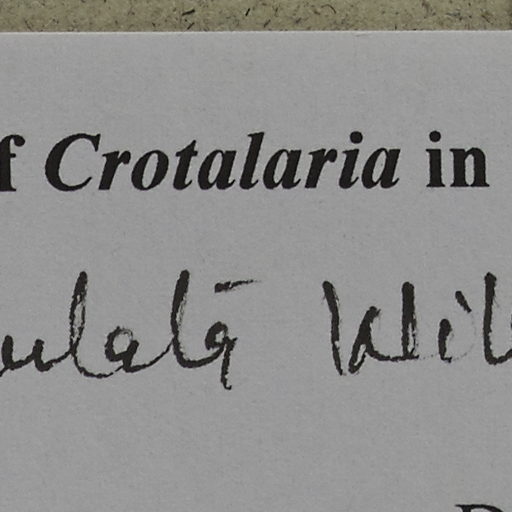 f Crotalaria in
ulata Wil